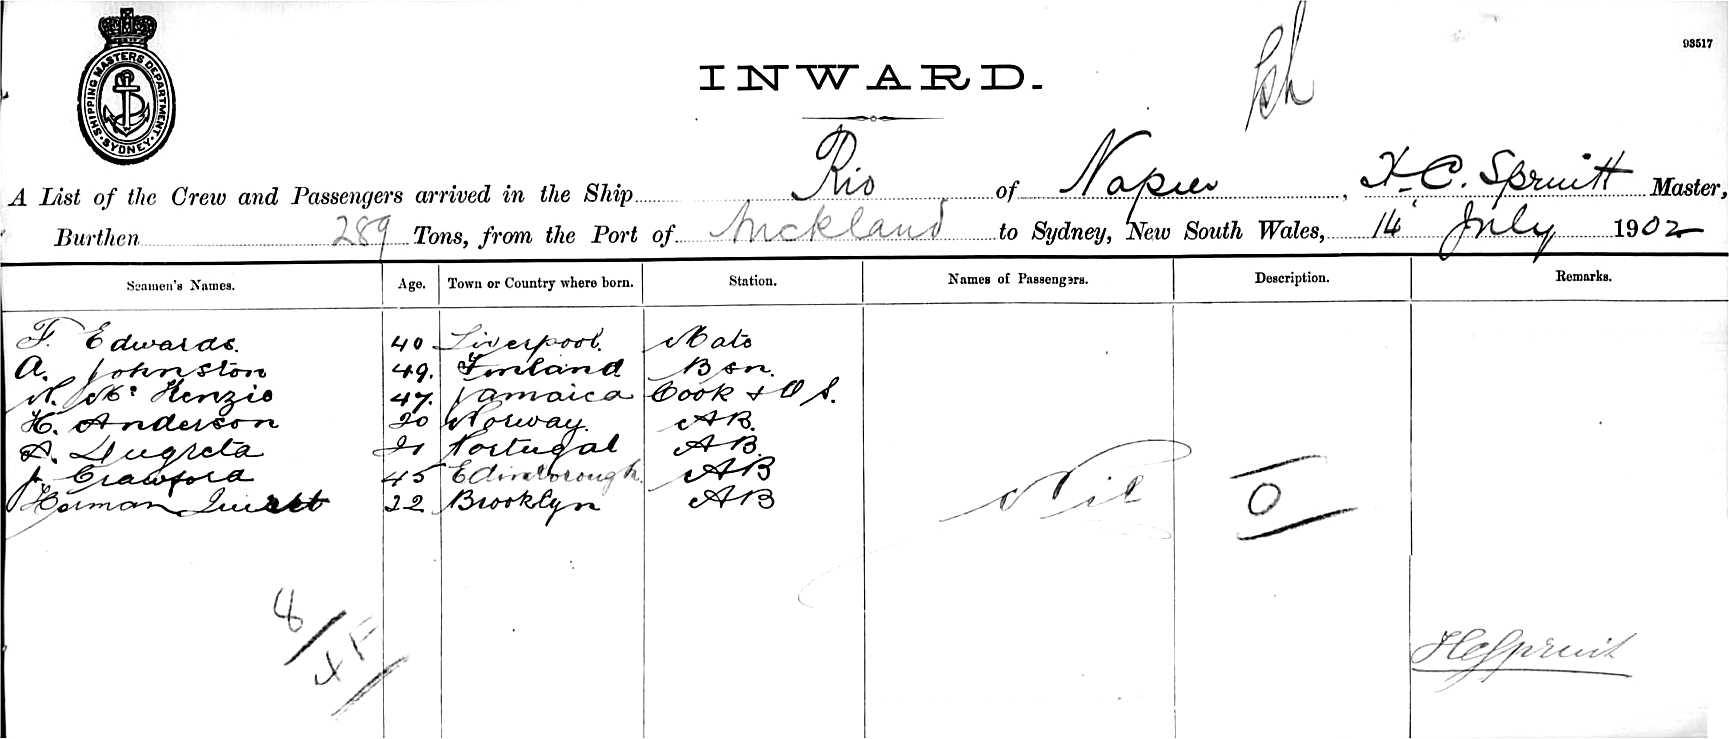 93517
SHIPPING MASTERS DEPARTMENT
SYDNEY
INWARD.
A List of the Crew and Passengers arrived in the Ship Rio of Napier, H. C. Spruitt Master,
Burthen 289 Tons, from the Port of Auckland to Sydney, New South Wales, 14 July 1902
Seamen's Names. Age. Town or Country where born. Station. Names of Passengers. Description. Remarks.
F. Edwards. 40 Liverpool. Mate
A. Johnston 49. Finland Bsn.
N. McKenzie 47. Jamaica Cook & O S.
H. Anderson 20 Norway. AB.
A. 21 Portugal AB.
J. Crawford 45 Edinborough. AB
Herman 22 Brooklyn AB
Nil O
8
4 F
HCSpruit